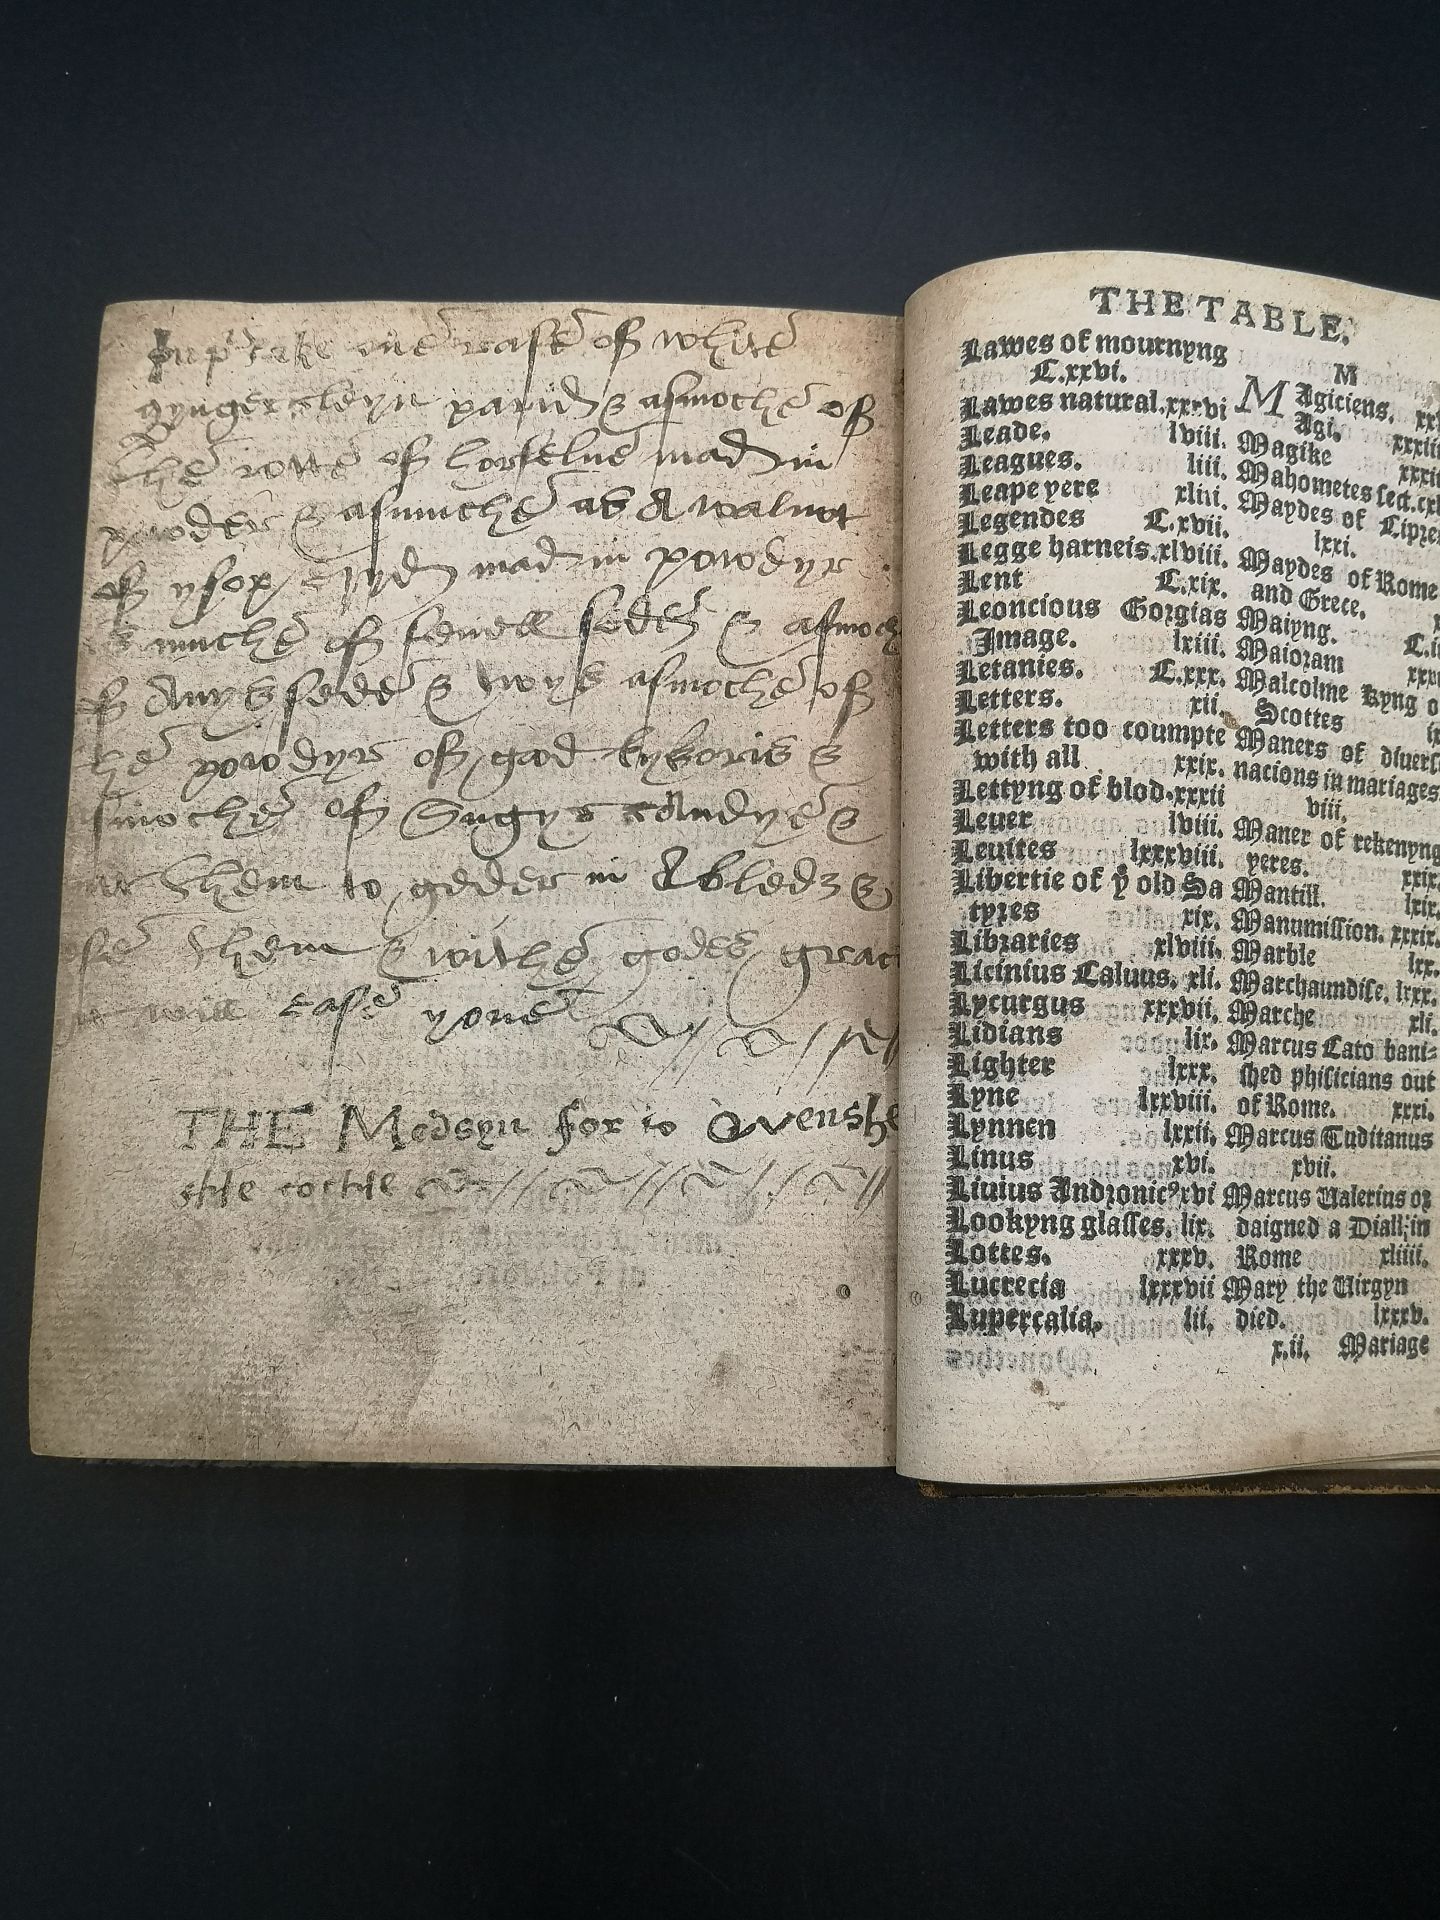 take one rase of white
gynger cleyn parid & asmoche of
the rote of horselne mad in
powder & asmuche as A walnot
of ysop, dryd mad in powdyr
muche of fenell sede & asmoch
of Anys sede & twys asmoche of
he powdyr of good lykoris &
smoche of Sugyr candye &
them to geder in A bled3 &
se them & withe godes grac
it will ease yone
THE Medsyn for to Qvenshe
the cothe
THE TABLE.
Lawes of mournyng
C.xxvi.
Lawes natural.xxxvi
Leade. lviii.
Leagues. liii.
Leape yere xliii.
Legendes C.xvii.
Legge harneis.xlviii.
Lent C.xix.
Leoncious Gorgias
Image. lxiii.
Letanies. C.xxx.
Letters. xii.
Letters too coumpte
with all xxix.
Lettyng of blod.xxxii
Leuer lviii.
Leuites lxxxviii.
Libertie of ẏ old Sa
tyres xix.
Libraries xlviii.
Licinius Caluus. xli.
Lycurgus xxxvii.
Lidians lix.
Lighter lxxx.
Lyne lxxviii.
Lynnen lxxii.
Linus xvi.
Liuius Andronicꝰ xvi
Lookyng glasses. lix.
Lottes. xxxv.
Lucrecia lxxxvii
Lupercalia. lii.
M
MAgiciens.
Agi. xxxiii
Magike
Mahometes sect.
Maydes of
lxxi.
Maydes of Rome
and Grece.
Maiyng.
Maioram
Malcolme kyng
Scottes
Maners of
nacions in mariages
viii.
Maner of rekenyng
yeres. xxix.
Mantill. lxix.
Manumission. xxxix.
Marble lxx.
Marchaundise. lxxx.
Marche xli.
Marcus Cato bani-
shed phisicians out
of Rome. xxxi.
Marcus Tuditanus
xvii.
Marcus Ualerius or
daigned a Diall in
Rome xliiii.
Mary the Uirgyn
died. lxxxv.
x.ii. Mariage